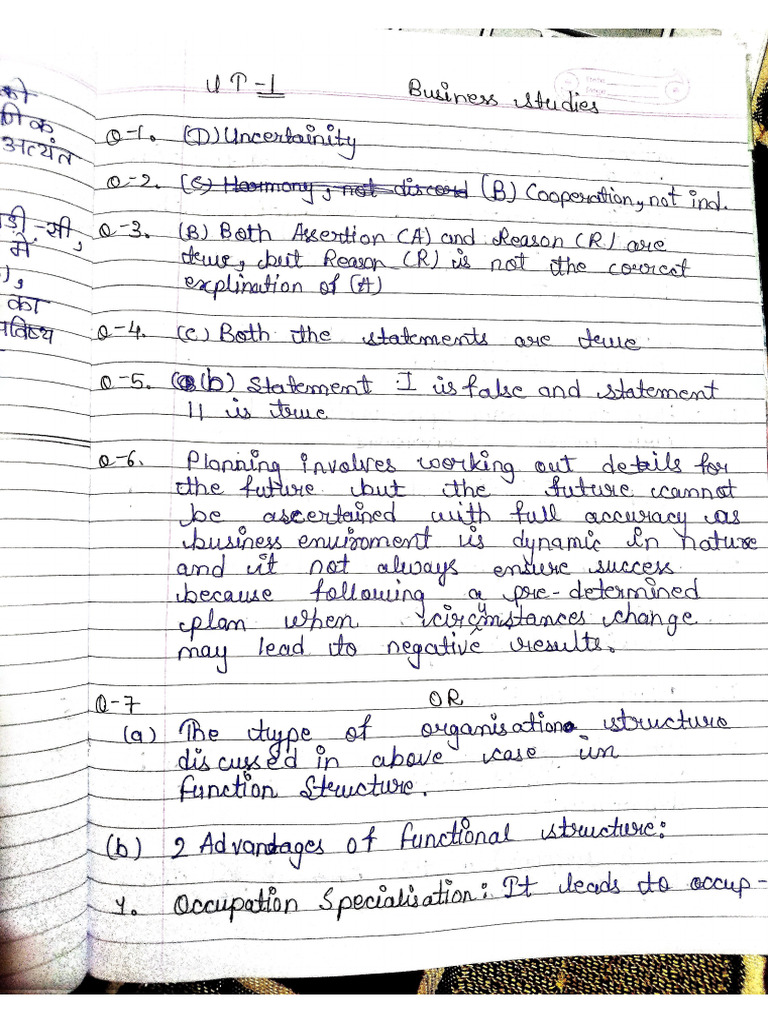 को
णिक
अत्यंत
में
का
UT-1 Business studies
Q-1. (D) Uncertainity
Q-2. (C) Harmony, not discord (B) Cooperation, not ind.
Q-3. (B) Both Assertion (A) and Reason (R) are
true, but Reason (R) is not the correct
explination of (A)
Q-4. (C) Both the statements are true
Q-5. (b) Statement I is false and statement
II is true
Q-6. Planning involves working out details for
the future but the future cannot
be ascertained with full accuracy as
business enuiroment is dynamic in nature
and it not always ensure success
because following a pre-determined
plan when circumstances change
may lead to negative results.
Q-7 OR
(a) The type of organisation structure
discussed in above case in
function Structure.
(b) 2 Advantages of functional structure:
1. Occupation Specialisation: It leads to occup-